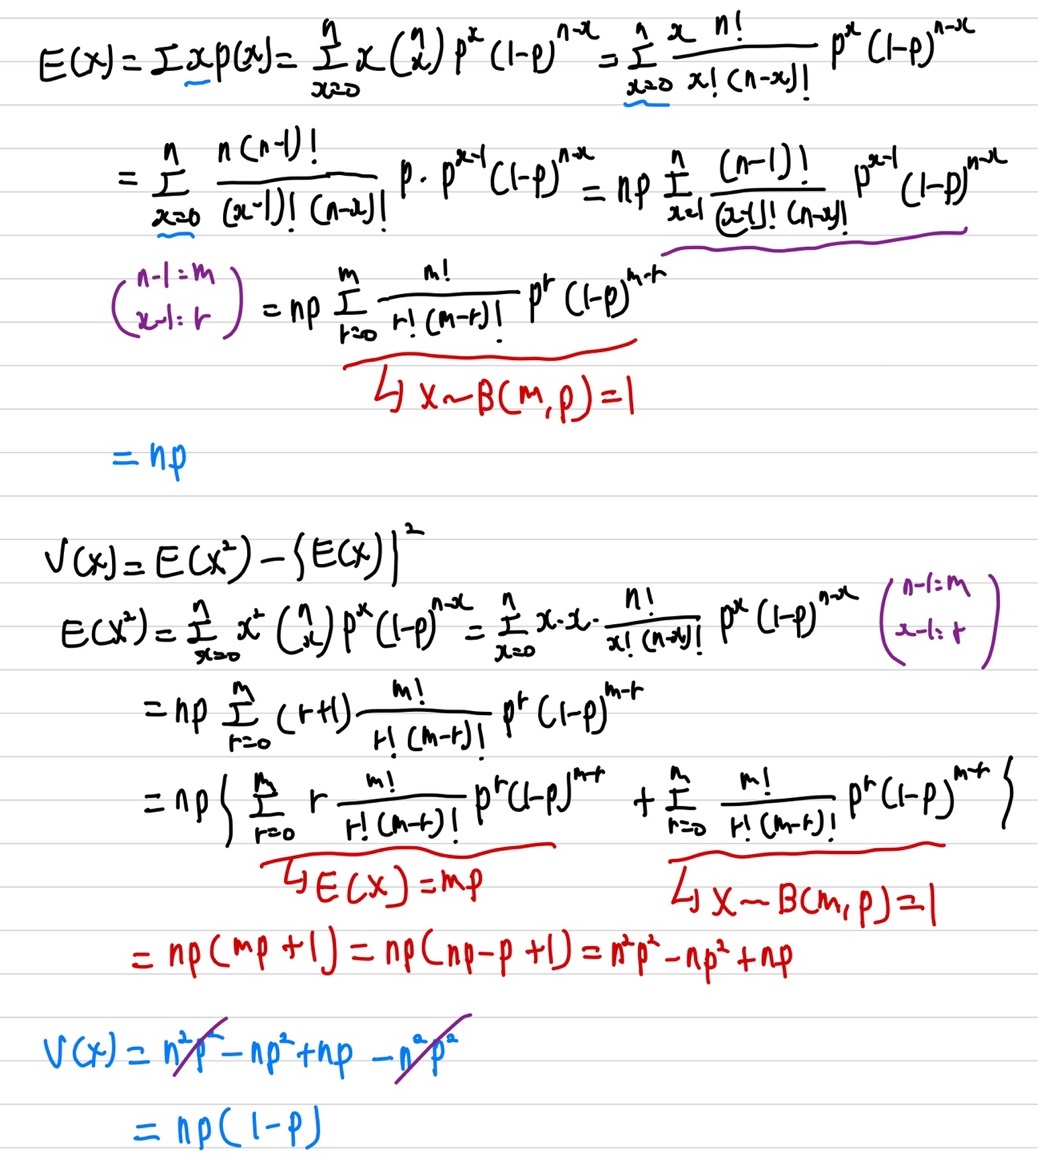 E(X) = Σxp(x) = Σ_{x=0}^{n} x (n x) p^x (1-p)^{n-x} = Σ_{x=0}^{n} \frac{x n!}{x! (n-x)!} p^x (1-p)^{n-x}
= Σ_{x=0}^{n} \frac{n(n-1)!}{(x-1)! (n-x)!} p · p^{x-1} (1-p)^{n-x} = np Σ_{x=1}^{n} \frac{(n-1)!}{(x-1)! (n-x)!} p^{x-1} (1-p)^{n-x}
(n-1=m x-1=r) = np Σ_{r=0}^{m} \frac{m!}{r! (m-r)!} p^r (1-p)^{m-r}
↳ X~B(m,p)=1
= np
V(X) = E(X²) - {E(X)}²
E(X²) = Σ_{x=0}^{n} x² (n x) p^x (1-p)^{n-x} = Σ_{x=0}^{n} x·x· \frac{n!}{x! (n-x)!} p^x (1-p)^{n-x} (n-1=m x-1=r)
= np Σ_{r=0}^{m} (r+1) \frac{m!}{r! (m-r)!} p^r (1-p)^{m-r}
= np { Σ_{r=0}^{m} r \frac{m!}{r! (m-r)!} p^r (1-p)^{m-r} + Σ_{r=0}^{m} \frac{m!}{r! (m-r)!} p^r (1-p)^{m-r} }
↳ E(X) = mp ↳ X~B(m,p)=1
= np(mp+1) = np(np-p+1) = n²p² - np² + np
V(X) = n²p² - np² + np - n²p²
= np(1-p)